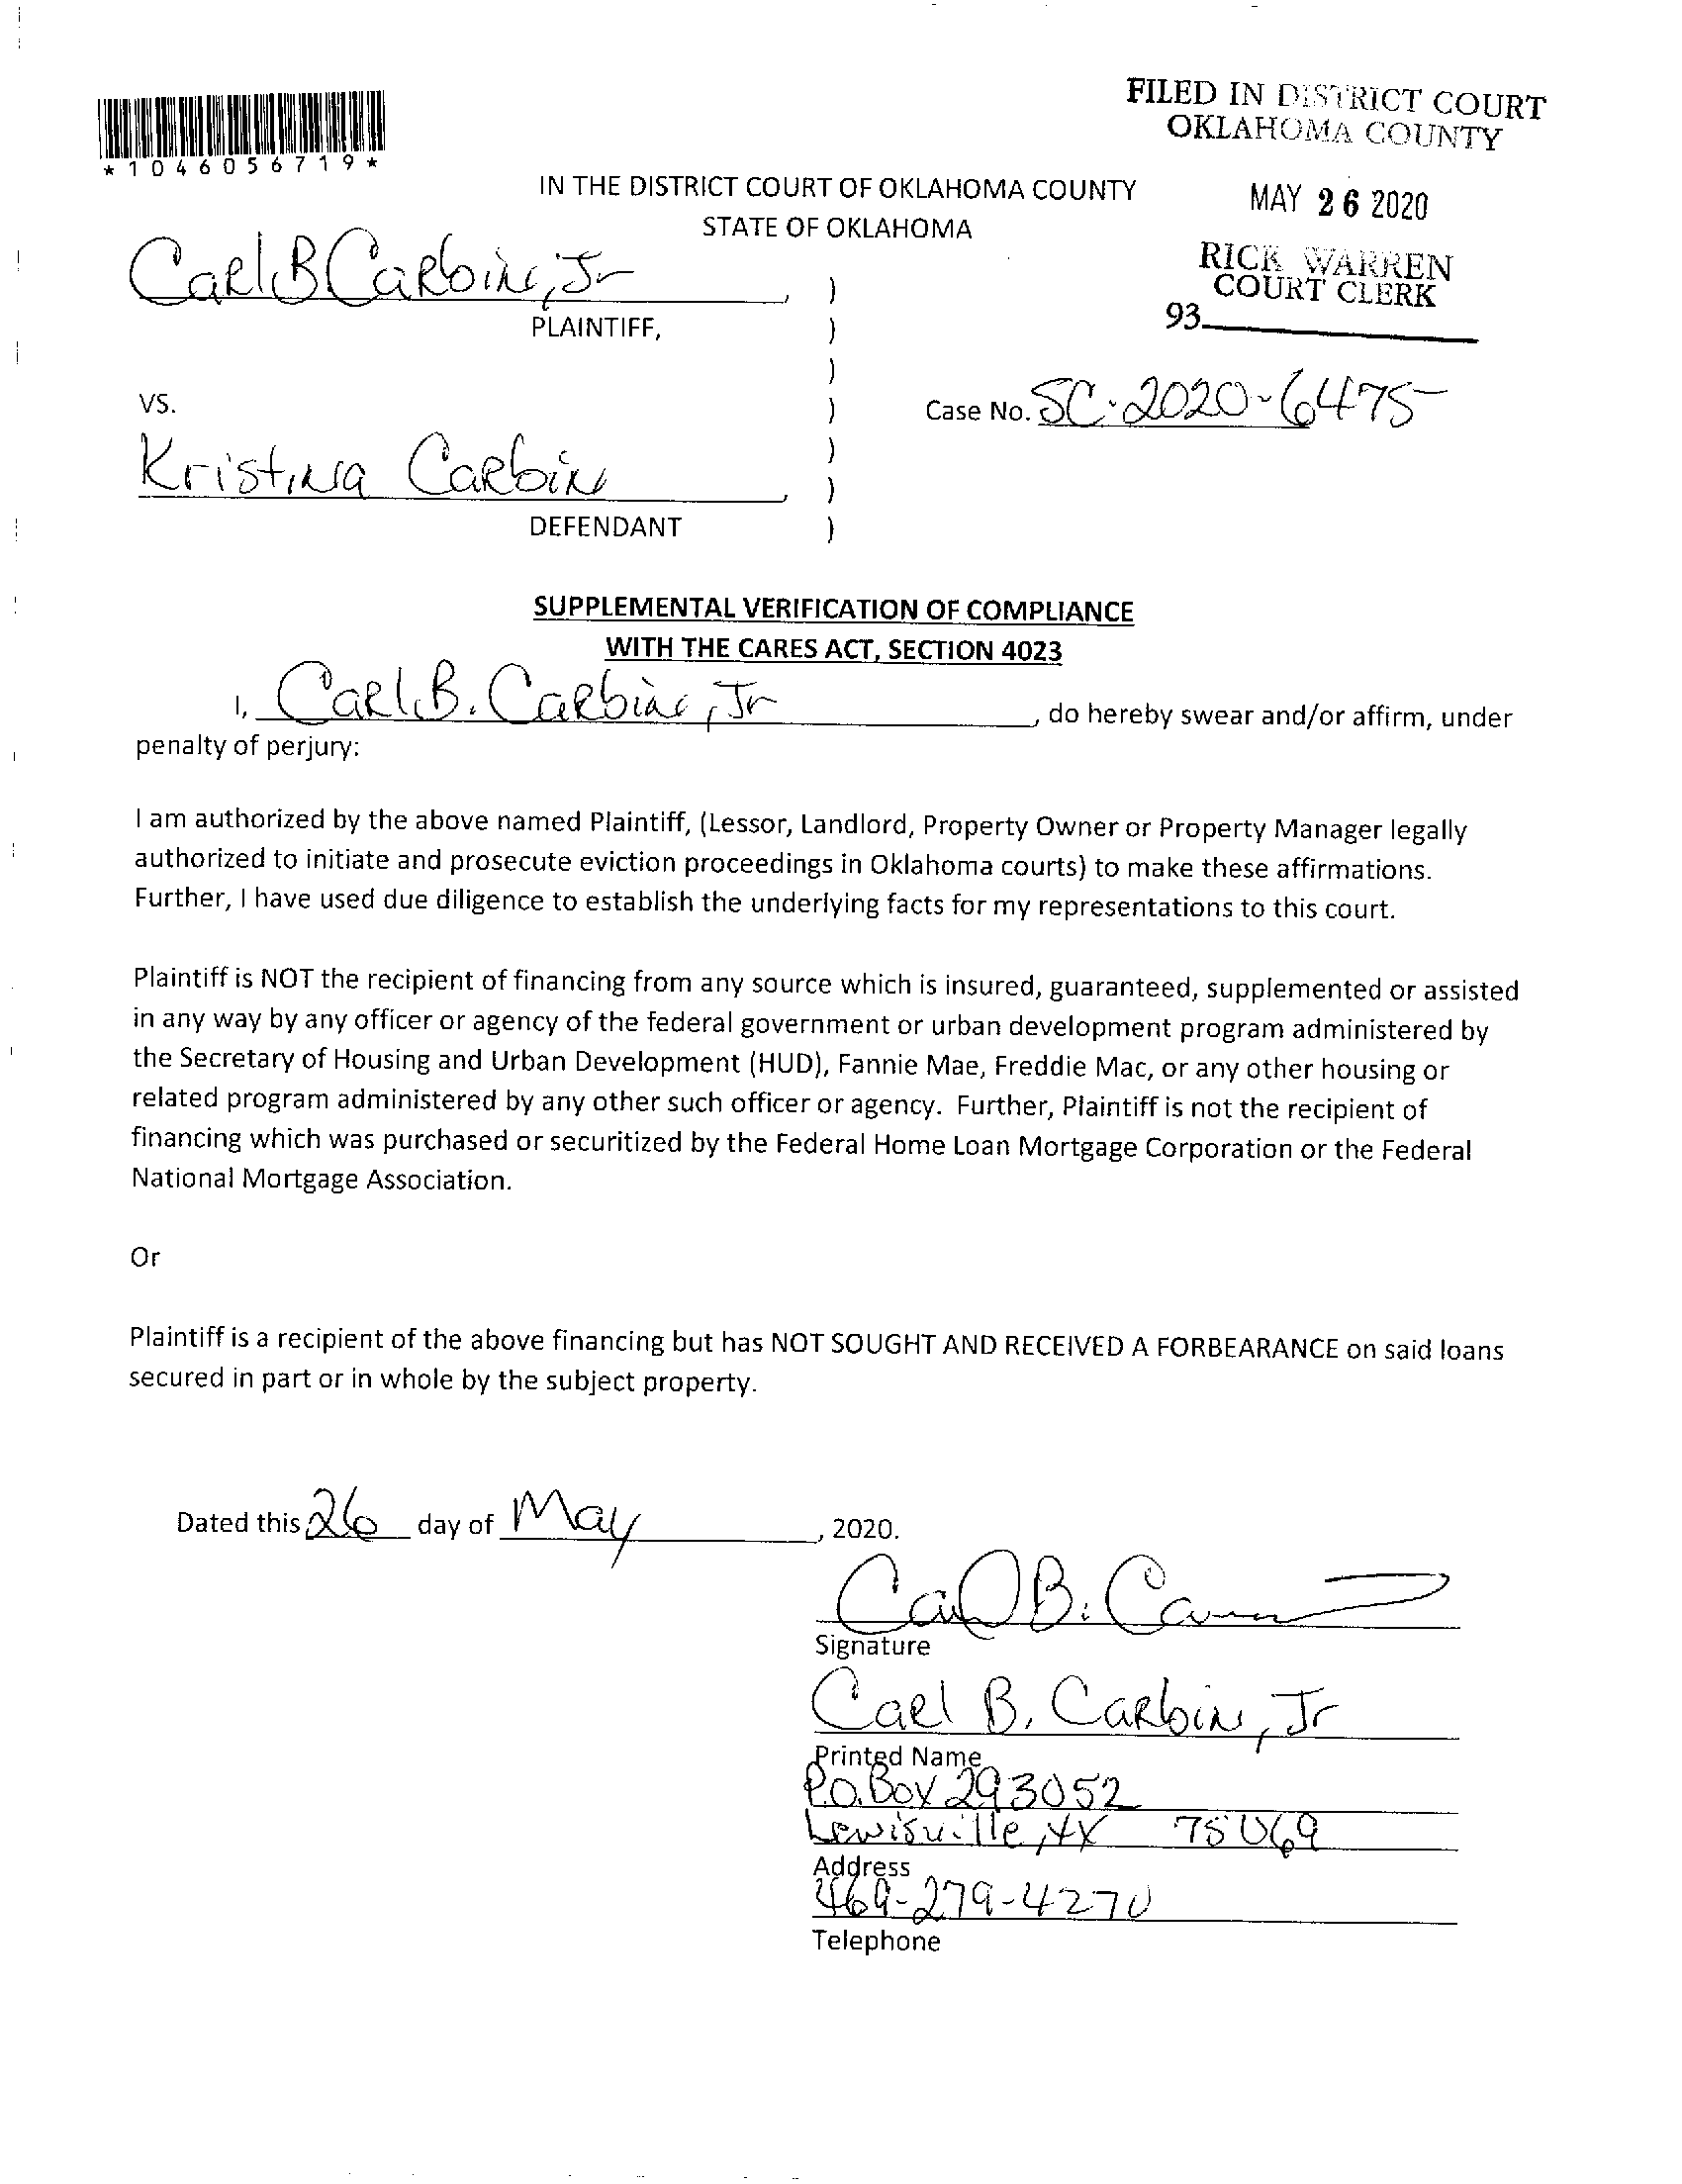 FILED IN DISTRICT COURT
OKLAHOMA COUNTY
*1046056719*
IN THE DISTRICT COURT OF OKLAHOMA COUNTY
MAY 26 2020
STATE OF OKLAHOMA
RICK WARREN
COURT CLERK
93
Carl B Carbine, Jr ,
)
PLAINTIFF,
)
)
VS.
)
Case No. SC-2020-6475
)
Kristina Carbine ,
)
DEFENDANT
)
SUPPLEMENTAL VERIFICATION OF COMPLIANCE
WITH THE CARES ACT, SECTION 4023
I, Carl B. Carbine, Jr , do hereby swear and/or affirm, under
penalty of perjury:
I am authorized by the above named Plaintiff, (Lessor, Landlord, Property Owner or Property Manager legally
authorized to initiate and prosecute eviction proceedings in Oklahoma courts) to make these affirmations.
Further, I have used due diligence to establish the underlying facts for my representations to this court.
Plaintiff is NOT the recipient of financing from any source which is insured, guaranteed, supplemented or assisted
in any way by any officer or agency of the federal government or urban development program administered by
the Secretary of Housing and Urban Development (HUD), Fannie Mae, Freddie Mac, or any other housing or
related program administered by any other such officer or agency. Further, Plaintiff is not the recipient of
financing which was purchased or securitized by the Federal Home Loan Mortgage Corporation or the Federal
National Mortgage Association.
Or
Plaintiff is a recipient of the above financing but has NOT SOUGHT AND RECEIVED A FORBEARANCE on said loans
secured in part or in whole by the subject property.
Dated this 26 day of May , 2020.
Carl B. Ca
Signature
Carl B. Carbine, Jr
Printed Name
P.O. Box 293052
Lewisville, TX 75069
Address
469-279-4270
Telephone